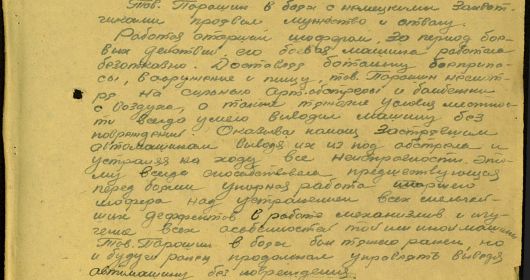 Тов. Парошин в боях с немецкими захват-
чиками проявил мужество и отвагу.
Работая старшим шоффером, за период бое-
вых действий, его боевая машина работала
безотказно. Доставляя батальону боеприпа-
сы, вооружение и пищу, тов. Парошин несмот-
ря на сильные артобстрелы и бомбежки
с воздуха, а также тяжелые условия местнос-
ти всегда умело выводил машину без
повреждений. Оказывал помощь застрявшим
автомашинам выводя их из под обстрела и
устраняя на ходу все неисправности. Это-
му всегда способствовала предшествующая
перед боями упорная работа старшего
шофера над устранением всех мельчай-
ших деффектов в работе механизмов и изу-
чение всех особенностей той или иной машины
Тов. Парошин в боях был тяжело ранен но
и будучи ранен продолжал управлять выводя
автомашину без повреждения.